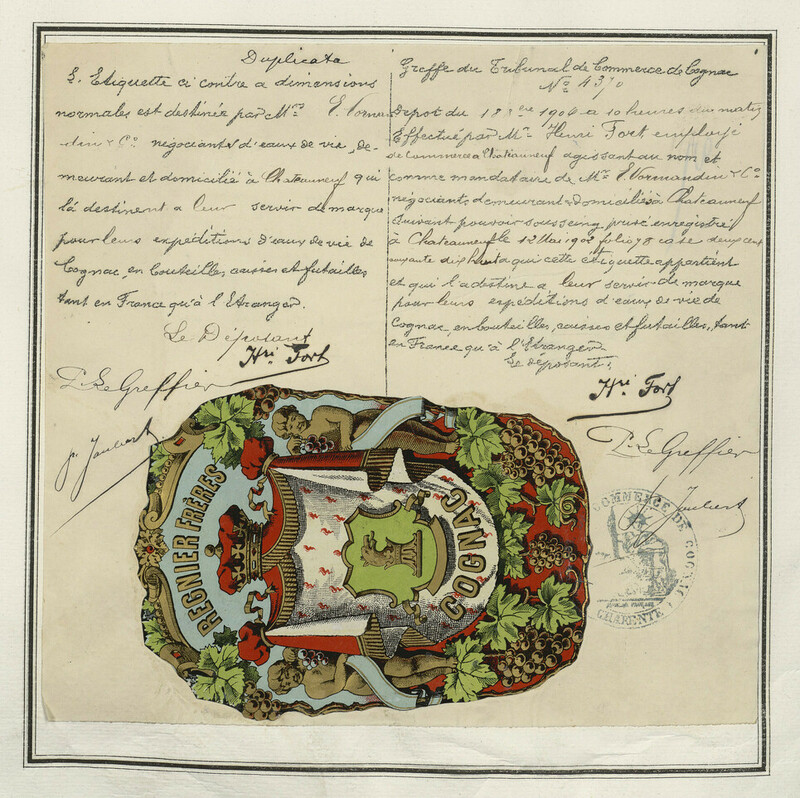 Duplicata
L. Etiquette ci contre a dimensions
normales est destinée par Mrs E. Norman
din & Co négociants d'eaux de vie, de-
meurant et domicilié à Chateauneuf qui
la destinent a leur servir de marque
pour leurs expéditions d'eaux de vie de
Cognac, en bouteilles, caisses et futailles
tant en France qu'à l'Etranger.
Le Déposant
Hri Fort
P. Le Greffier
Joubert
Greffe du Tribunal de Commerce de Cognac
No
Depot du 1906 a 10 heures du matin
Effectué par Mr Henri Fort employé
de commerce a Chateauneuf agissant au nom et
comme mandataire de Mrs E. Normandin & Co
négociants demeurant & domiciliés à Chateauneuf
suivant pouvoir sousseing privé enregistré
à Chateauneuf le 12 Mai folio 78 case deux cent
a qui cette étiquette appartient
et qui l'a destine a leur servir de marque
pour leurs expéditions d'eaux de vie de
Cognac en bouteilles, caisses et futailles, tant
en France qu'à l'Etranger
Le déposant.
Hri Fort
P. Le Greffier
Joubert
REGNIER FRÈRES
COGNAC
COMMERCE DE COGNAC
CHARENTE